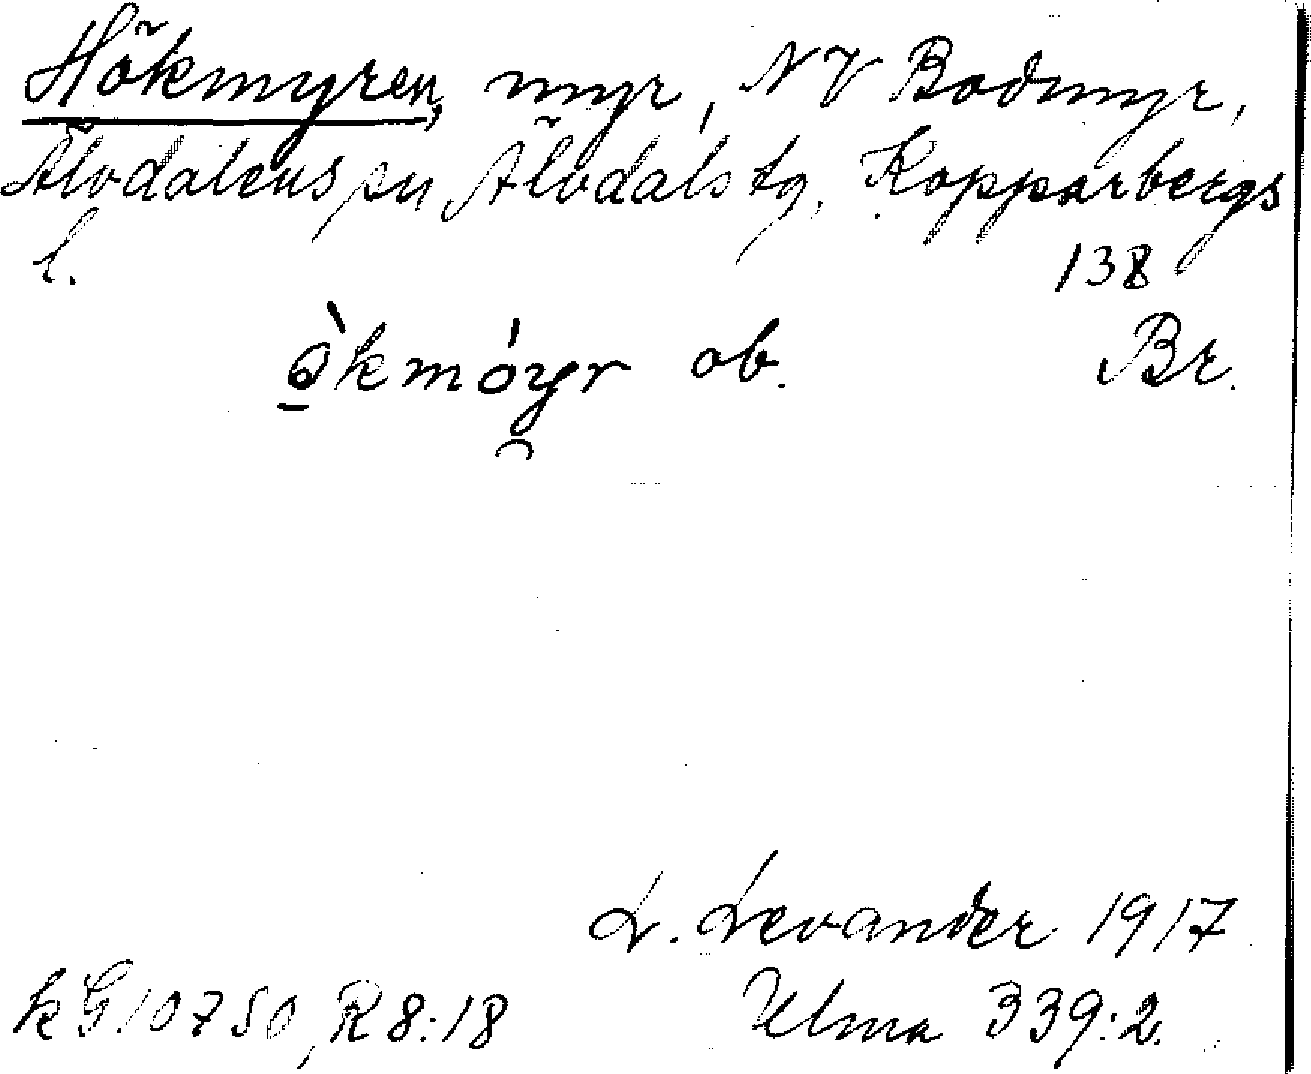 Hökmyren, myr, NV Bodmyr,
Älvdalens sn Älvdals tg, Kopparbergs
l.
138
ə̀kmóyr ob. Br.
L. Levander 1917
kG 10750, R 8:18 Ulma 339:2.